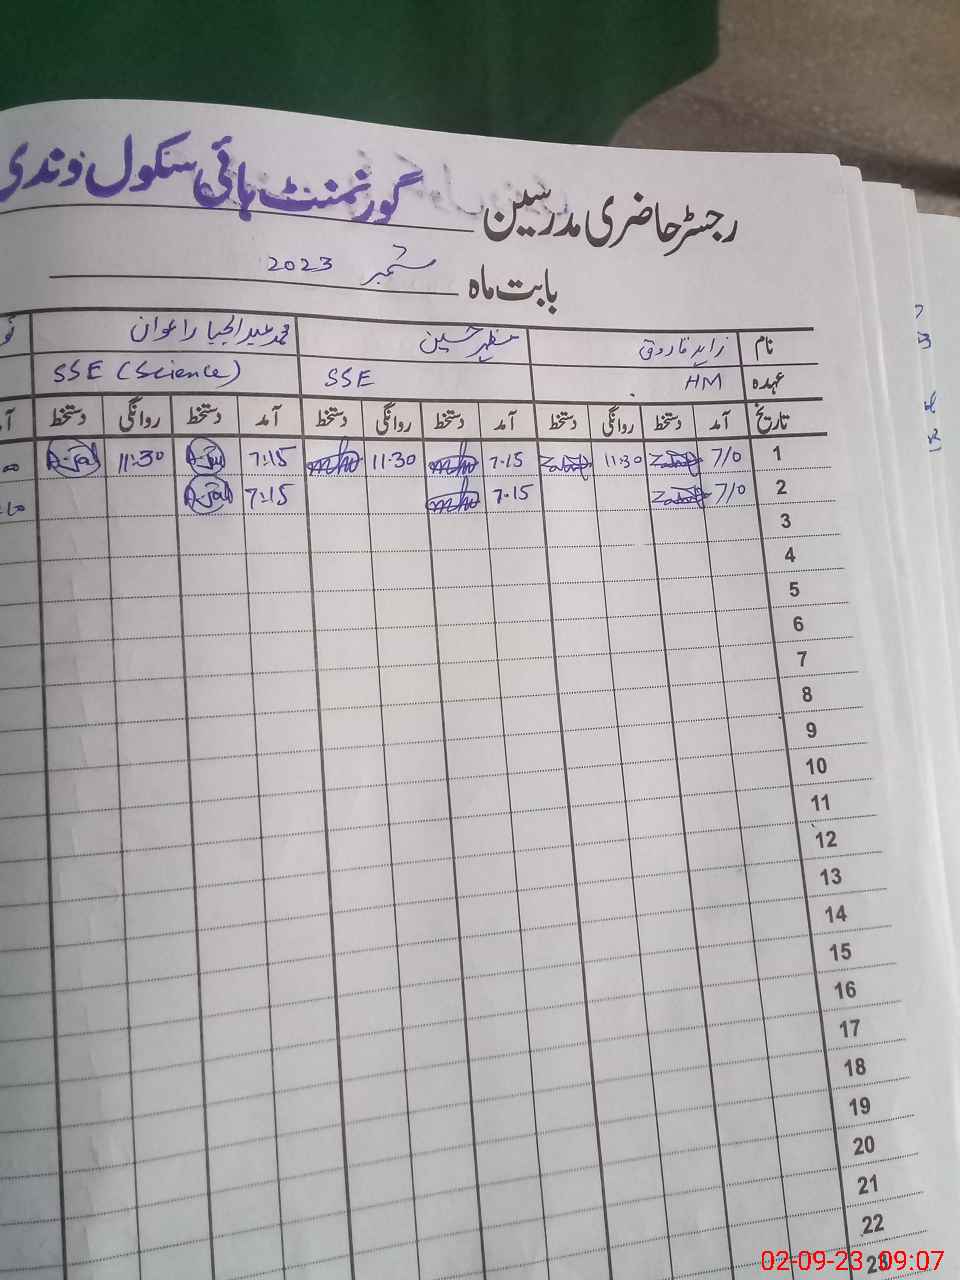 رجسٹر حاضری مدرسین گورنمنٹ ہائی سکول ونڈی
بابت ماہ ستمبر 2023
نام زاہد فاروق مظہر حسین محمد عبدالجبار اعوان
عہدہ HM SSE SSE (Science)
تاریخ آمد دستخط روانگی دستخط آمد دستخط روانگی دستخط آمد دستخط روانگی دستخط
1 7/0 11:30 7.15 11.30 7:15 11:30
2 7/0 7.15 7:15
3
4
5
6
7
8
9
10
11
12
13
14
15
16
17
18
19
20
21
22
23
02-09-23 09:07